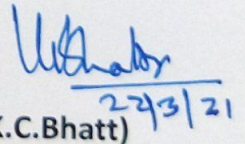 22/3/21
.C.Bhatt)